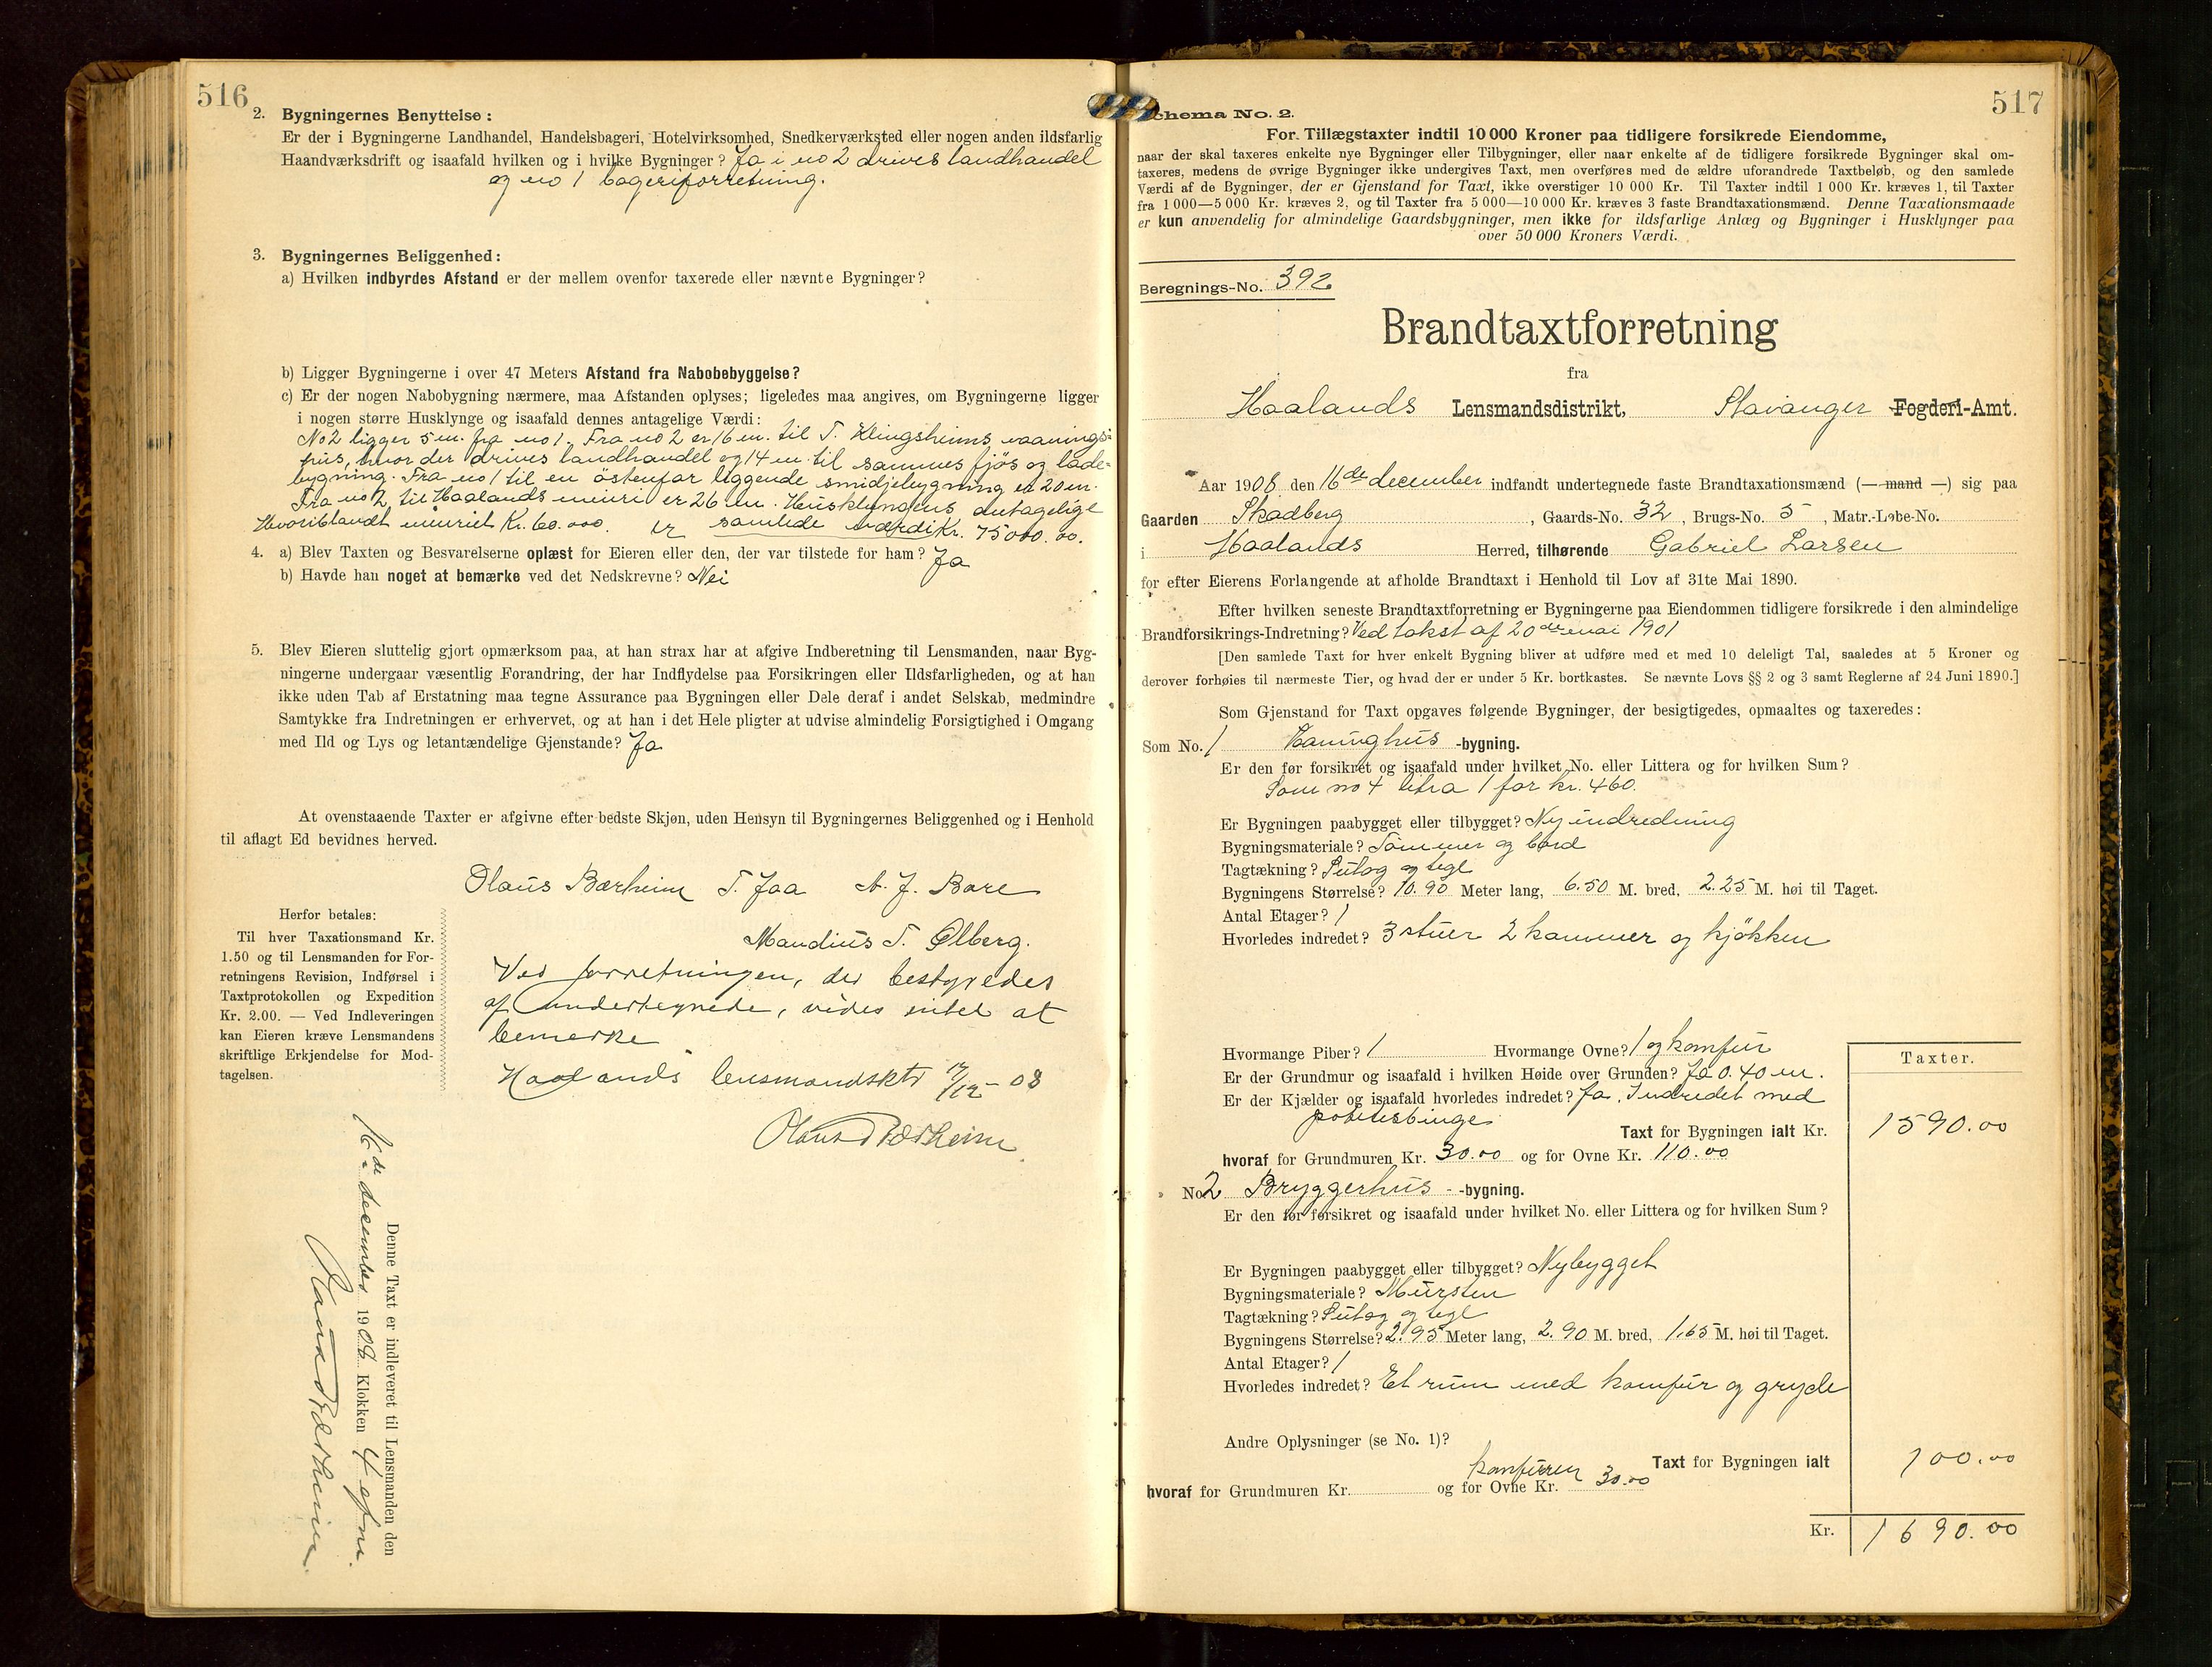 516
2. Bygningernes Benyttelse:
Er der i Bygningerne Landhandel, Handelsbageri, Hotelvirksomhed, Snedkerværksted eller nogen anden ildsfarlig
Haandværksdrift og isaafald hvilken og i hvilke Bygninger? Ja i no 2 drives landhandel
og no 1 bageriforretning.
3. Bygningernes Beliggenhed:
a) Hvilken indbyrdes Afstand er der mellem ovenfor taxerede eller nævnte Bygninger?
b) Ligger Bygningerne i over 47 Meters Afstand fra Nabobebyggelse?
c) Er der nogen Nabobygning nærmere, maa Afstanden oplyses; ligeledes maa angives, om Bygningerne ligger
i nogen større Husklynge og isaafald dennes antagelige Værdi:
No 2 ligger 5 m. fra no 1. Fra no 2 er 16 m. til T. Klingsheims vaanings-
hus, hvor der drives landhandel og 14 m. til sammes fjøs og lade-
bygning. Fra no 1 til en östenfor liggende smidjebygning er 20 m.
Fra no 2 til Haalands meieri er 26 m. Husklyngens antagelige
Hvoriblandt meieriet Kr. 60.000. er samlede værdi Kr. 75000.00.
4. a) Blev Taxten og Besvarelserne oplæst for Eieren eller den, der var tilstede for ham? Ja
b) Havde han noget at bemærke ved det Nedskrevne? Nei
5. Blev Eieren sluttelig gjort opmærksom paa, at han strax har at afgive Indberetning til Lensmanden, naar Byg-
ningerne undergaar væsentlig Forandring, der har Indflydelse paa Forsikringen eller Ildsfarligheden, og at han
ikke uden Tab af Erstatning maa tegne Assurance paa Bygningen eller Dele deraf i andet Selskab, medmindre
Samtykke fra Indretningen er erhvervet, og at han i det Hele pligter at udvise almindelig Forsigtighed i Omgang
med Ild og Lys og letantændelige Gjenstande? Ja
At ovenstaaende Taxter er afgivne efter bedste Skjøn, uden Hensyn til Bygningernes Beliggenhed og i Henhold
til aflagt Ed bevidnes herved.
Olaus Bærheim T. Jaa A. J. Bore
Maudius T. Ølberg.
Herfor betales:
Til hver Taxationsmand Kr.
1.50 og til Lensmanden for For-
retningens Revision, Indførsel i
Taxtprotokollen og Expedition
Kr. 2.00. — Ved Indleveringen
kan Eieren kræve Lensmandens
skriftlige Erkjendelse for Mod-
tagelsen.
Ved forretningen, der bestyredes
af undertegnede, vides intet at
bemerke
Haalands lensmandsktr 17/12-08
Olaus Bærheim
Denne Taxt er indleveret til Lensmanden den
16de december 1908 Klokken 4 efm.
Olaus Bærheim.
517
Schema No. 2.
For Tillægstaxter indtil 10 000 Kroner paa tidligere forsikrede Eiendomme,
naar der skal taxeres enkelte nye Bygninger eller Tilbygninger, eller naar enkelte af de tidligere forsikrede Bygninger skal om-
taxeres, medens de øvrige Bygninger ikke undergives Taxt, men overføres med de ældre uforandrede Taxtbeløb, og den samlede
Værdi af de Bygninger, der er Gjenstand for Taxt, ikke overstiger 10 000 Kr. Til Taxter indtil 1 000 Kr. kræves 1, til Taxter
fra 1 000—5 000 Kr. kræves 2, og til Taxter fra 5 000—10 000 Kr. kræves 3 faste Brandtaxationsmænd. Denne Taxationsmaade
er kun anvendelig for almindelige Gaardsbygninger, men ikke for ildsfarlige Anlæg og Bygninger i Husklynger paa
over 50 000 Kroners Værdi.
Beregnings-No. 392
Brandtaxtforretning
fra
Haalands Lensmandsdistrikt, Stavanger Fogderi-Amt.
Aar 1908 den 16de december indfandt undertegnede faste Brandtaxationsmænd (— mand —) sig paa
Gaarden Skadberg, Gaards-No. 32, Brugs-No. 5, Matr.-Løbe-No.
i Haalands Herred, tilhørende Gabriel Larsen
for efter Eierens Forlangende at afholde Brandtaxt i Henhold til Lov af 31te Mai 1890.
Efter hvilken seneste Brandtaxtforretning er Bygningerne paa Eiendommen tidligere forsikrede i den almindelige
Brandforsikrings-Indretning? Ved takst af 20de mai 1901
[Den samlede Taxt for hver enkelt Bygning bliver at udføre med et med 10 deleligt Tal, saaledes at 5 Kroner og
derover forhøies til nærmeste Tier, og hvad der er under 5 Kr. bortkastes. Se nævnte Lovs §§ 2 og 3 samt Reglerne af 24 Juni 1890.]
Som Gjenstand for Taxt opgaves følgende Bygninger, der besigtigedes, opmaaltes og taxeredes:
Som No. 1 Vaaninghus -bygning.
Er den før forsikret og isaafald under hvilket No. eller Littera og for hvilken Sum?
Som no 4 litra 1 for kr. 460.
Er Bygningen paabygget eller tilbygget? Ny indredning
Bygningsmateriale? Tömmer og bord
Tagtækning? Sutag og tegl
Bygningens Størrelse? 10.90 Meter lang, 6.50 M. bred, 2.25 M. høi til Taget.
Antal Etager? 1
Hvorledes indredet? 3 stuer 2 kammer og kjökken
Hvormange Piber? 1 Hvormange Ovne? 1 og komfur
Er der Grundmur og isaafald i hvilken Høide over Grunden? Ja 0.40 m.
Er der Kjælder og isaafald hvorledes indredet? Ja. Indredet med
potetesbinge
Taxter.
Taxt for Bygningen ialt Kr. 1590.00
hvoraf for Grundmuren Kr. 30.00 og for Ovne Kr. 110.00
No 2 Bryggerhus -bygning.
Er den før forsikret og isaafald under hvilket No. eller Littera og for hvilken Sum?
Er Bygningen paabygget eller tilbygget? Nybygget
Bygningsmateriale? Mursten
Tagtækning? Sutag og tegl
Bygningens Størrelse? 2.95 Meter lang, 2.90 M. bred, 1.65 M. høi til Taget.
Antal Etager? 1
Hvorledes indredet? Et rum med komfur og gryde
Andre Oplysninger (se No. 1)?
Taxt for Bygningen ialt 100.00
hvoraf for Grundmuren Kr. og for Ovne Kr. komfuren 30.00
Kr. 1690.00